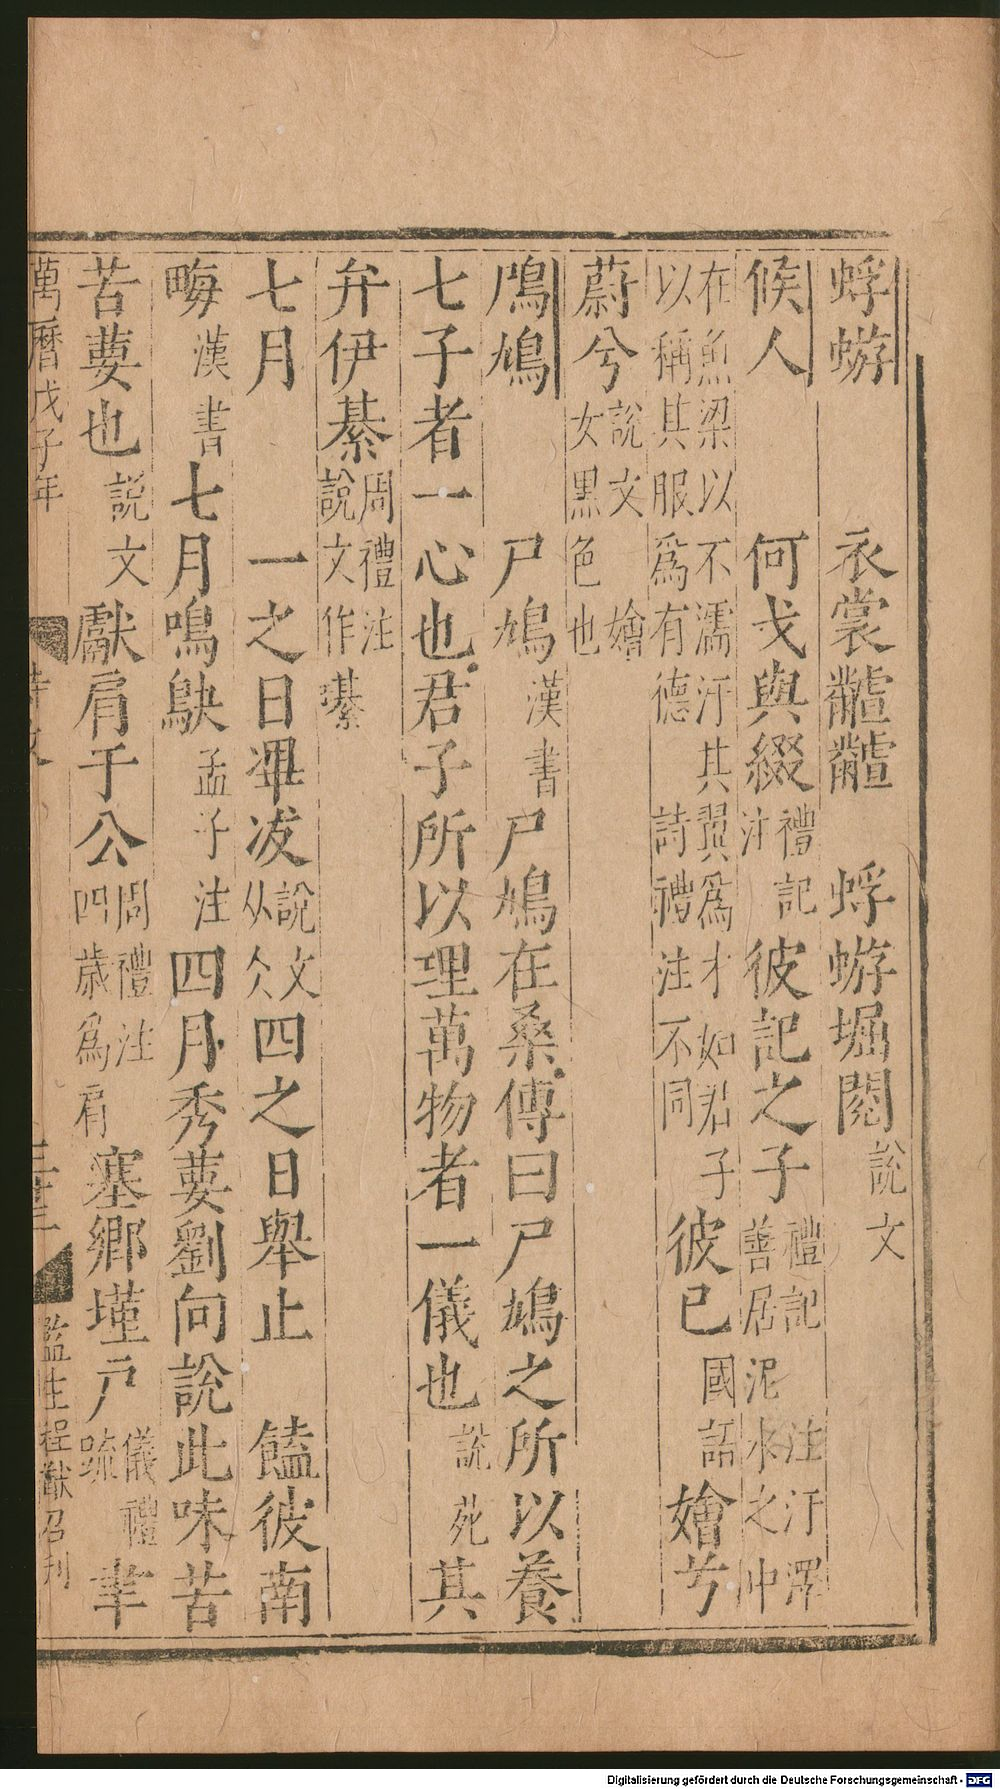 蜉蝣　衣裳黼黼　蜉蝣堀閱說文
候人　何戈與綴禮記注彼記之子禮記注汙澤善居泥水之中
在魚梁以不濡汙其翼為才如君子以稱其服爲有德詩禮注不同彼已國語嬒兮
蔚兮說文嬒女黑色也
鳲鳩　尸鳩漢書尸鳩在桑傳曰尸鳩之所以養
七子者一心也君子所以理萬物者一儀也說苑其
弁伊綦周禮注說文作
七月　一之日冹說文从仌四之日舉止　饁彼南
畮漢書七月鳴鴃孟子注四月秀葽劉向說此味苦
苦葽也說文獻肩于公周禮注四歲爲肩塞鄉墐戶儀禮疏
萬曆戊子年
監生程猷召刋
Digitalisierung gefördert durch die Deutsche Forschungsgemeinschaft - DFG